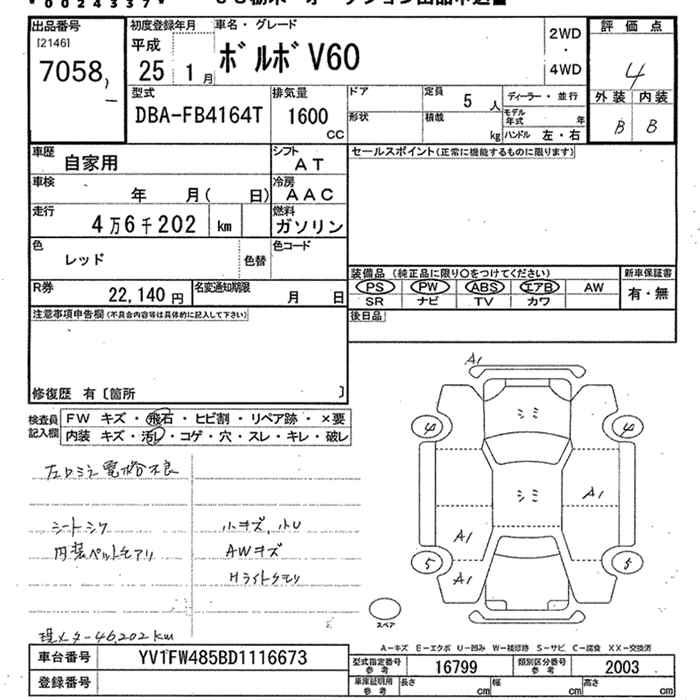 0024337
出品番号 初度登録年月 車名・グレード 2WD 評価点
[2146] 平成 ・
7058 25 1月 ボルボ V60 4WD 4
型式 排気量 ドア 定員 5人 ディーラー・並行 外装 内装
DBA-FB4164T 1600 CC 形状 積載 kg モデル年式 年 B B
ハンドル 左・右
車歴 自家用 シフト AT セールスポイント(正常に機能するものに限ります)
車検 年 月( 日) 冷房 AAC
走行 4万6千202 km 燃料 ガソリン
色 レッド 色替 色コード
装備品 (純正品に限り○をつけてください) 新車保証書
R券 22,140円 名変通知期限 月 日 PS PW ABS エアB AW 有・無
SR ナビ TV カワ
注意事項申告欄(不具合内容等は具体的に記入して下さい) 後日品
修復歴 有〔箇所 〕
A1
検査員記入欄 FW キズ・飛石・ヒビ割・リペア跡・×要
内装 キズ・汚レ・コゲ・穴・スレ・キレ・破レ
シミ
4 4
シミ A1
シートシワ 小キズ、小U
A1
内装ペットモアリ AWキズ
5 5
Hライトクモリ A1
スペア
現メーター46,202km
A-キズ E-エクボ U-凹み W-補修跡 S-サビ C-腐食 XX-交換済
車台番号 YV1FW485BD1116673 型式指定番号 参考 16799 類別区分番号 参考 2003
登録番号 車庫証明所 参考 長さ cm 幅 cm 高さ cm